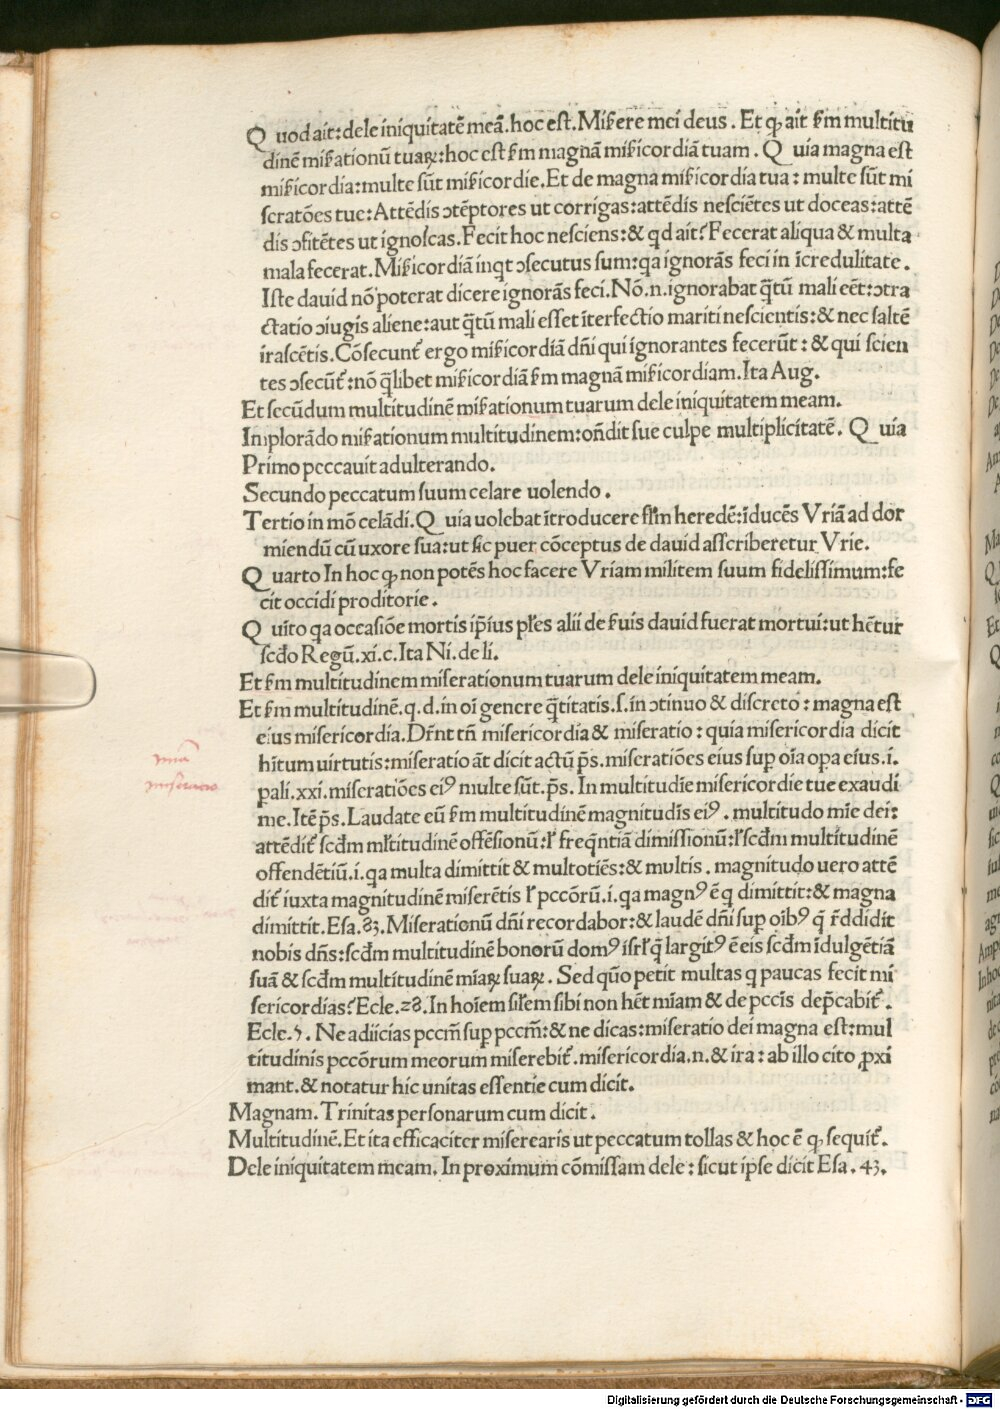 Q uod ait: dele iniquitatē meā. hoc est. Miſ̄ere mei deus. Et ꝙ ait ẜm multitu
dinē miẜationū tuaꝝ: hoc est ẜm magnā miẜicordiā tuam. Q uia magna est
miẜicordia: multe ſūt miẜicordie. Et de magna miẜicordia tua: multe ſūt mi
ſeratōes tue: Attēdis ↄtēptores ut corrigas: attēdis neſciētes ut doceas: attē
dis ↄfitētes ut ignoſcas. Fecit hoc neſciens: & qd ait? Fecerat aliqua & multa
mala fecerat. Miẜicordiā inqt ↄſecutus ſum: qa ignorās feci in īcredulitate.
Iſte dauid nō poterat dicere ignorās feci. Nō. n. ignorabat q̄tū mali eēt: ↄtra
ctatio ↄiugis aliene: aut q̄tū mali eſſet īterfectio mariti neſcientis: & nec ſaltē
iraſcētis. Cōſecunt̄ ergo miẜicordiā dn̄i qui ignorantes fecerūt: & qui ſcien
tes ↄſecūt̄: nō q̄libet miẜicordiā ẜm magnā miẜicordiam. Ita Aug.
Et ſecūdum multitudinē miẜationum tuarum dele iniquitatem meam.
Implorādo miẜationum multitudinem: oñdit ſue culpe multiplicitatē. Q uia
Primo peccauit adulterando.
Secundo peccatum ſuum celare uolendo.
Tertio in mō celādi. Q uia uolebat ītroducere fl̄m heredē: īducēs Vriā ad dor
miendū cū uxore ſua: ut ſic puer cōceptus de dauid aſſcriberetur Vrie.
Q uarto In hoc ꝙ non potēs hoc facere Vriam militem ſuum fideliſſimum: fe
cit occidi proditorie.
Q uīto qa occaſiōe mortis ip̄ius pl̄es alii de ſuis dauid fuerat mortui: ut hētur
ſcd̄o Regū. xi. c. Ita Ni. de li.
Et ẜm multitudinem miserationum tuarum dele iniquitatem meam.
Et ẜm multitudinē. q. d. in oī genere q̄titatis. ſ. in ↄtinuo & diſcreto: magna est
eius miſericordia. Dr̄nt tn̄ miſericordia & miſeratio: quia miſericordia dicit
hītum uirtutis: miſeratio āt dicit actū. p̄s. miſeratiōes eius ſup oīa opa eius. i.
pali. xxi. miſeratiōes eiꝰ multe ſūt. p̄s. In multitudīe miſericordie tue exaudi
me. Itē p̄s. Laudate eū ẜm multitudinē magnitudīs eiꝰ. multitudo mīe dei:
attēdit̄ ſcd̄m ml̄titudinē offēſionū: l̄ freq̄ntiā dimiſſionū: l̄ ſcd̄m multitudinē
offendētiū. i. qa multa dimittit & multotiēs: & multis. magnitudo uero attē
dit̄ iuxta magnitudinē miſerētis l̄ pccōrū. i. qa magnꝰ ē q̄ dimittit: & magna
dimittit. Eſa. 83. Miſerationū dn̄i recordabor: & laudē dn̄i ſup oībꝰ q̄ r̄ddidit
nobis dn̄s: ſcd̄m multitudinē bonorū domꝰ iſrl̄ q̄ largitꝰ ē eis ſcd̄m īdulgētiā
ſuā & ſcd̄m multitudinē mīaꝝ ſuaꝝ. Sed quō petit multas q paucas fecit mi
ſericordias? Ecle. 28. In hoīem ſil̄em ſibi non hēt mīam & de pccīs dep̄cabit̄.
Ecle. 5. Ne adiicias pccm̄ ſup pccm̄: & ne dicas: miſeratio dei magna eſt: mul
titudinis pccōrum meorum miſerebit̄. miſericordia. n. & ira: ab illo cito ꝓxi
mant. & notatur hic unitas eſſentie cum dicit.
Magnam. Trinitas perſonarum cum dicit.
Multitudinē. Et ita efficaciter miſerearis ut peccatum tollas & hoc ē ꝙ ſequit̄.
Dele iniquitatem meam. In proximum cōmiſſam dele: ſicut ipſe dicit Eſa. 43.
mīa
miſeratio
Digitalisierung gefördert durch die Deutsche Forschungsgemeinschaft - DFG